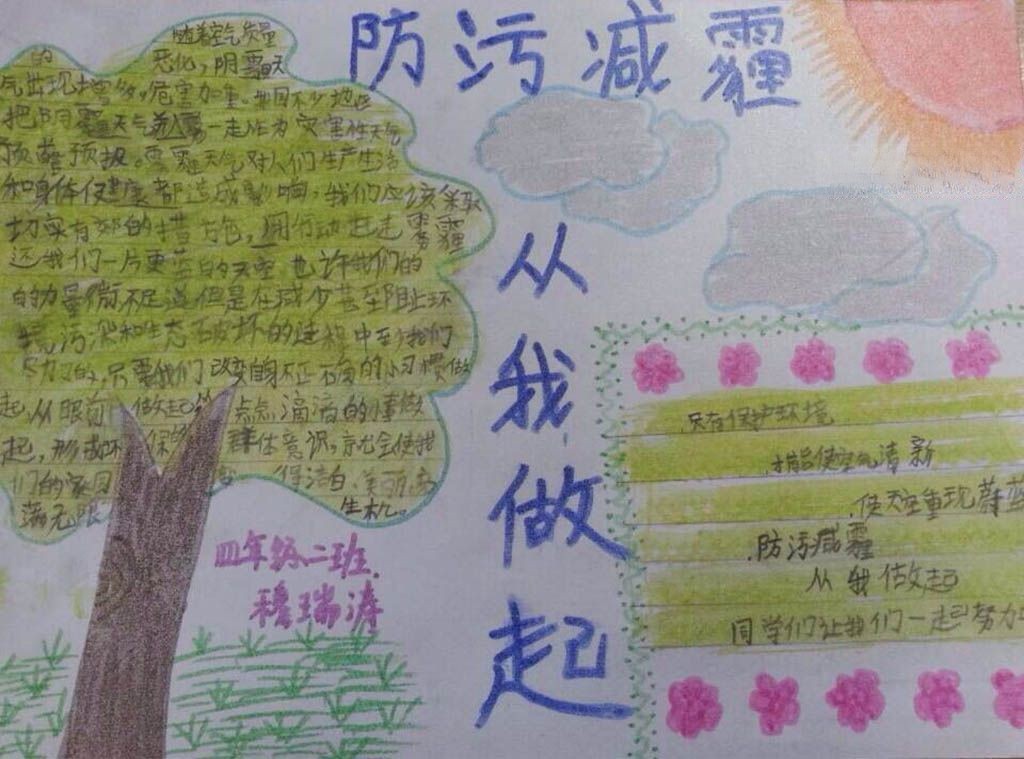 防污减霾
从我做起
随着空气质量
的恶化,阴霾天
气出现增多,危害加重。我国不少地区
把阴霾天气并入雾一起作为灾害性天气
预警预报。雾霾天气,对人们生产生活
和身体健康都造成影响,我们应该采取
切实有效的措施,用行动赶走雾霾
还我们一片更蓝的天空 也许我们的
的力量微不足道但是在减少甚至阻止环
境污染和生态破坏的过程中
努力的,只要我们改变自身不正确的小习惯做
起,从眼前做起 点点滴滴的小事做
起,形成环保的群体意识,就会使我
们的家园 得洁白、美丽、充
满无限生机。
四年级二班
穆瑞涛
只有保护环境
才能使空气清新
使天空重现蔚蓝
防污减霾
从我做起
同学们让我们一起努力